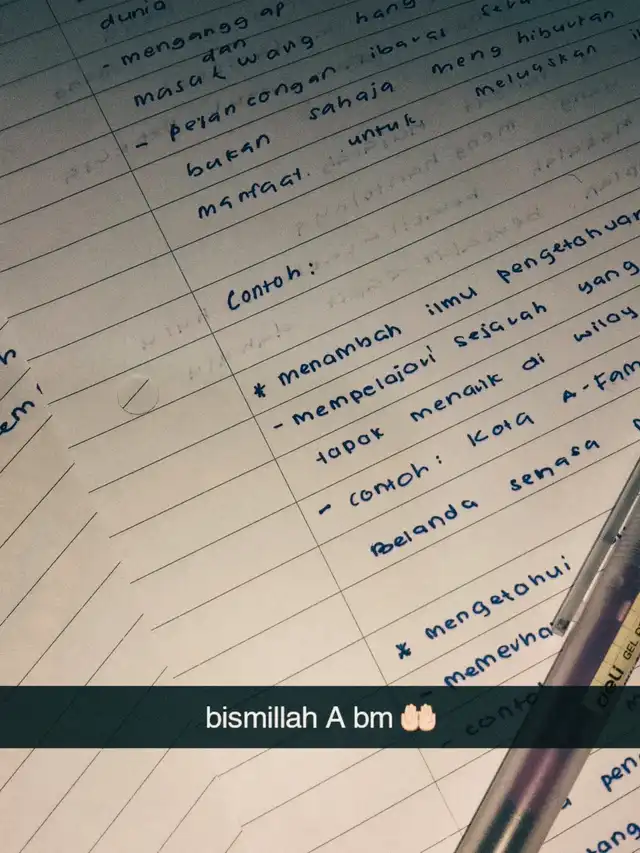 dunia
- menganggap
dan
masa & wang hang
- pelancongan ibarat
bukan sahaja menghiburkan
manfaat untuk meluaskan
Contoh:
* menambah ilmu pengetahuan
- mempelajari sejarah yang
tapak menarik di wilay
- contoh: Kota A-Fam
Belanda semasa
* mengetahui
- memerha
- conto
pen
ang
em!
deli GEL
bismillah A bm 🤲🏻